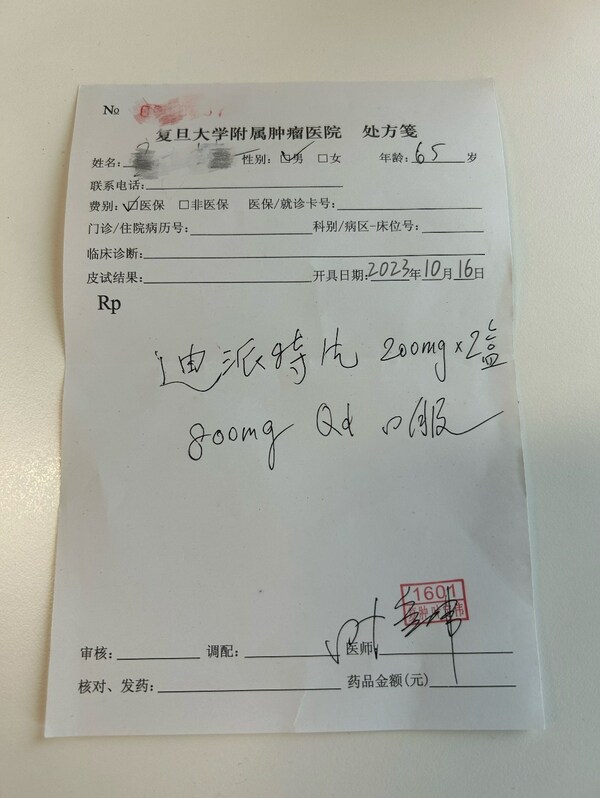 №
复旦大学附属肿瘤医院 处方笺
姓名: 性别: ☑男 □女 年龄: 65 岁
联系电话:
费别: ☑医保 □非医保 医保/就诊卡号:
门诊/住院病历号: 科别/病区-床位号:
临床诊断:
皮试结果: 开具日期: 2023年10月16日
Rp
迪派特片 200mg×2盒
800mg Qd 口服
1601
审核: 调配: 医师
核对、发药: 药品金额(元)